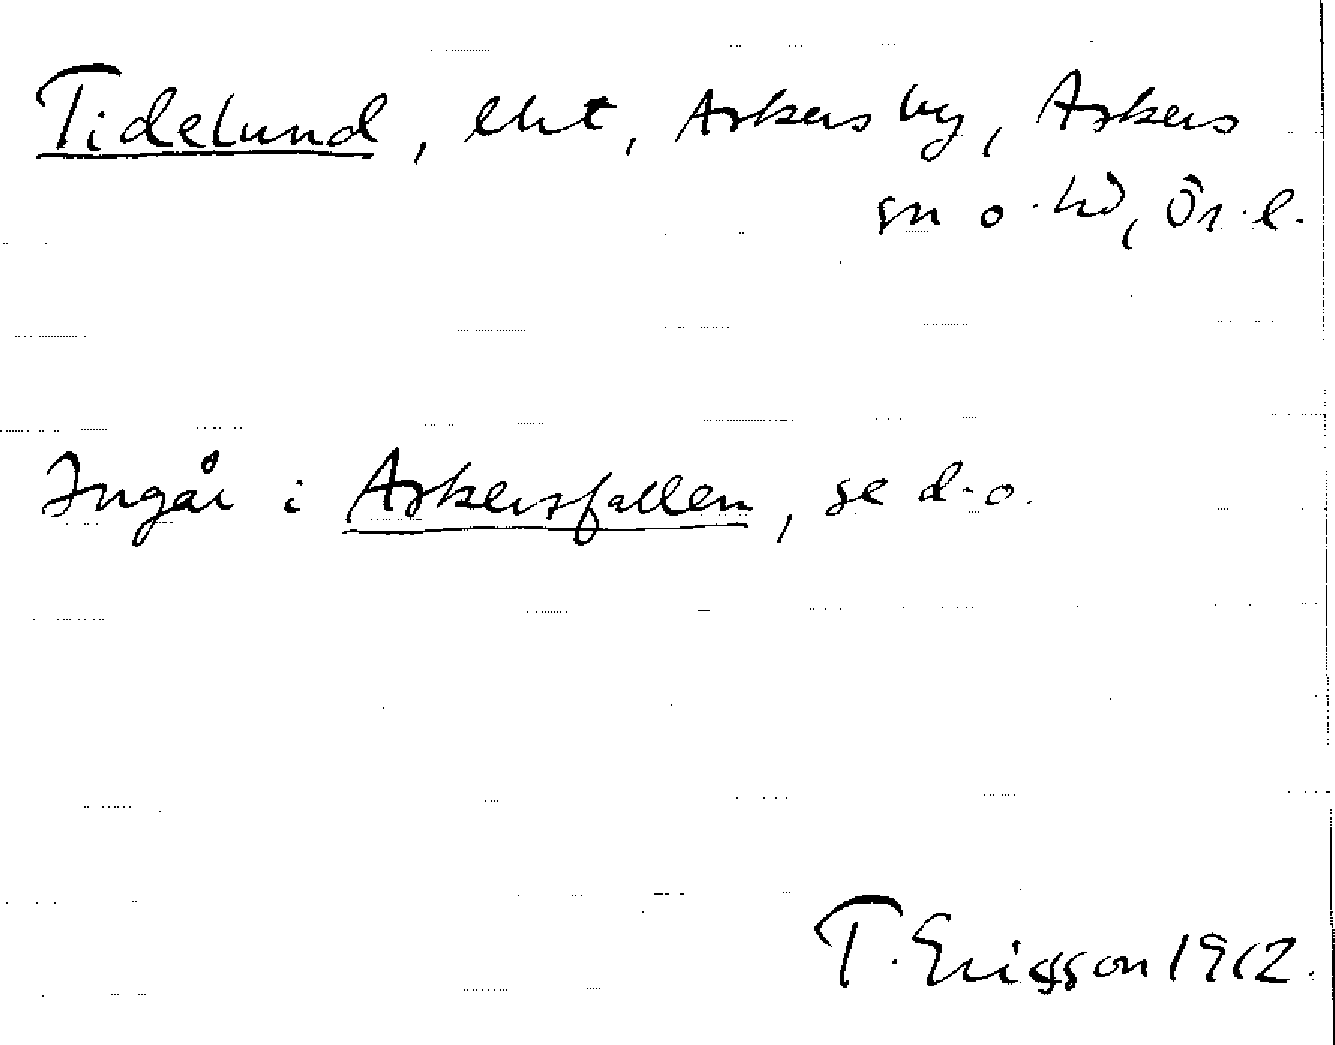 Tidelund, lht, Askersby, Askers
sn o. hd, Ör. l.
Ingår i Askersfallen, se d.o.
T. Ericsson 1962.